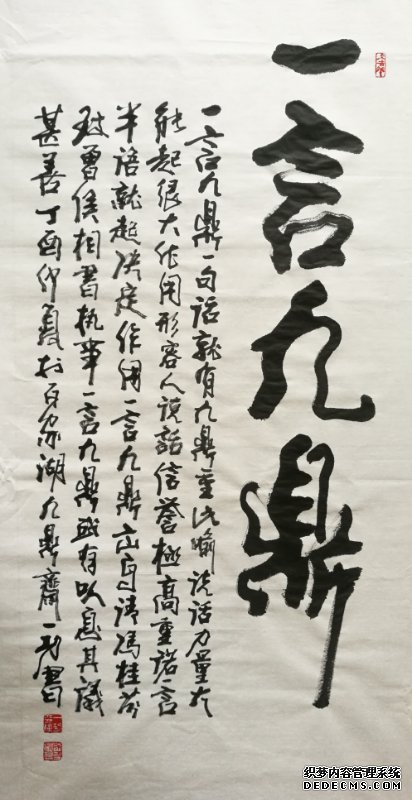 一言九鼎
一言九鼎一句话就有九鼎重比喻说话力量大
能起很大作用形容人说話信誉極高重诺言
半语就起决定作用一言九鼎出自清冯桂芬
致曾侯相書执事一言九鼎或有以息其議
甚善丁酉仲夏於百家湖九鼎齋一刀書
织梦内容管理系统
DEDECMS.COM